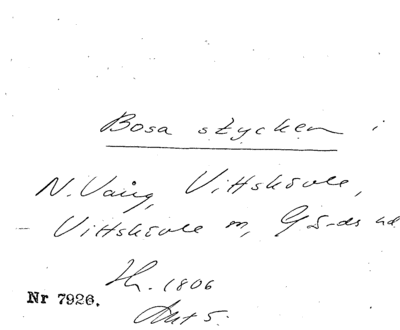 Bosa stycken i
N. Vång, Vittskövle,
Vittskövle sn, Gä-ds hd
1806
Nr 7926.